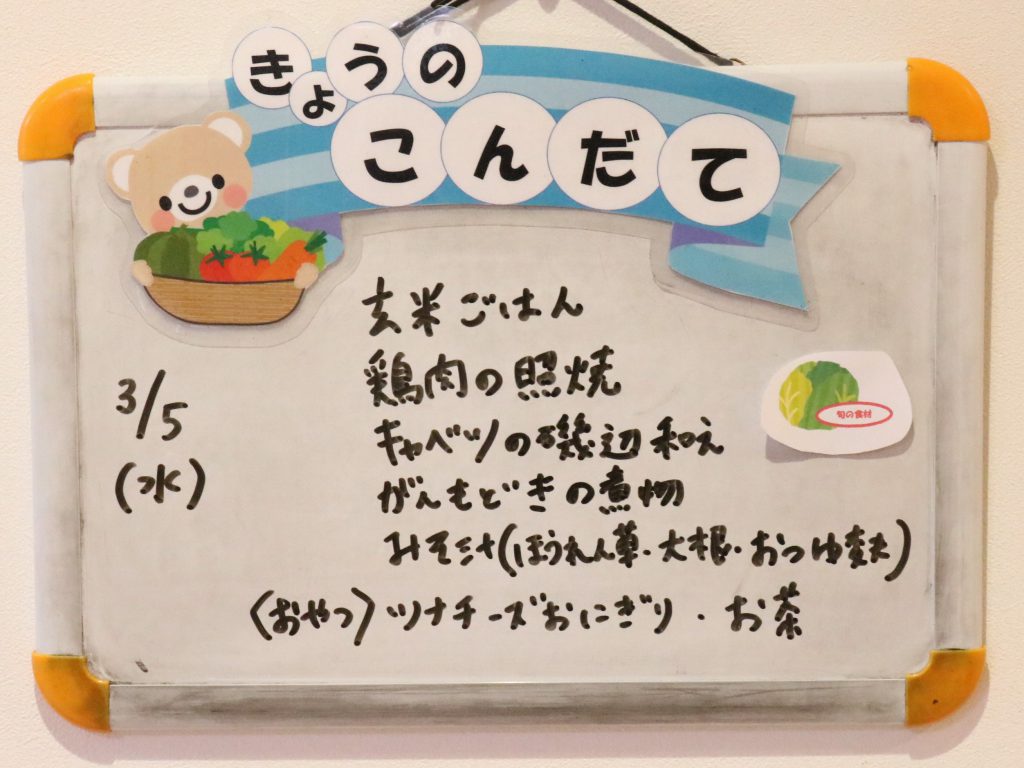 きょうの
こんだて
3/5
(水)
玄米ごはん
鶏肉の照焼
キャベツの磯辺和え
がんもどきの煮物
みそ汁(ほうれん草・大根・おつゆ麩)
〈おやつ〉ツナチーズおにぎり・お茶
旬の食材